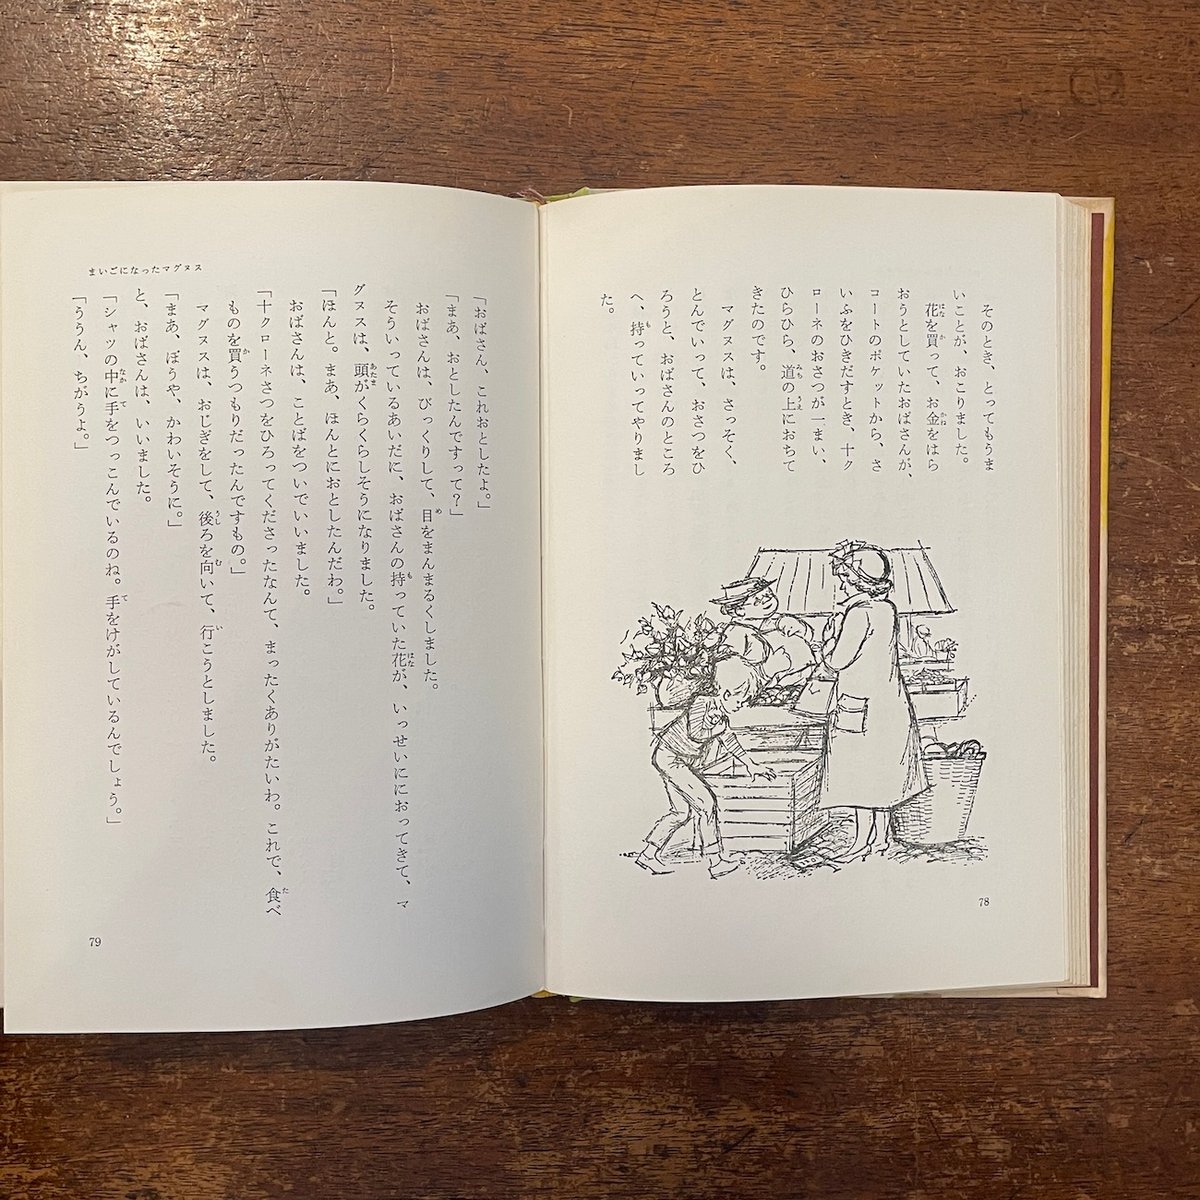 そのとき、とってもうま
いことが、おこりました。
花を買って、お金をはら
おうとしていたおばさんが、
コートのポケットから、さ
いふをひきだすとき、十ク
ローネのおさつが一まい、
ひらひら、道の上におちて
きたのです。
マグヌスは、さっそく、
とんでいって、おさつをひ
ろうと、おばさんのところ
へ、持っていってやりまし
た。
78
「おばさん、これおとしたよ。」
「まあ、おとしたんですって?」
おばさんは、びっくりして、目をまんまるくしました。
そういっているあいだに、おばさんの持っていた花が、いっせいにおってきて、マ
グヌスは、頭がくらくらしそうになりました。
「ほんと。まあ、ほんとにおとしたんだわ。」
おばさんは、ことばをついでいいました。
「十クローネさつをひろってくださったなんて、まったくありがたいわ。これで、食べ
ものを買うつもりだったんですもの。」
マグヌスは、おじぎをして、後ろを向いて、行こうとしました。
「まあ、ぼうや、かわいそうに。」
と、おばさんは、いいました。
「シャツの中に手をつっこんでいるのね。手をけがしているんでしょう。」
「ううん、ちがうよ。」
まいごになったマグヌス
79